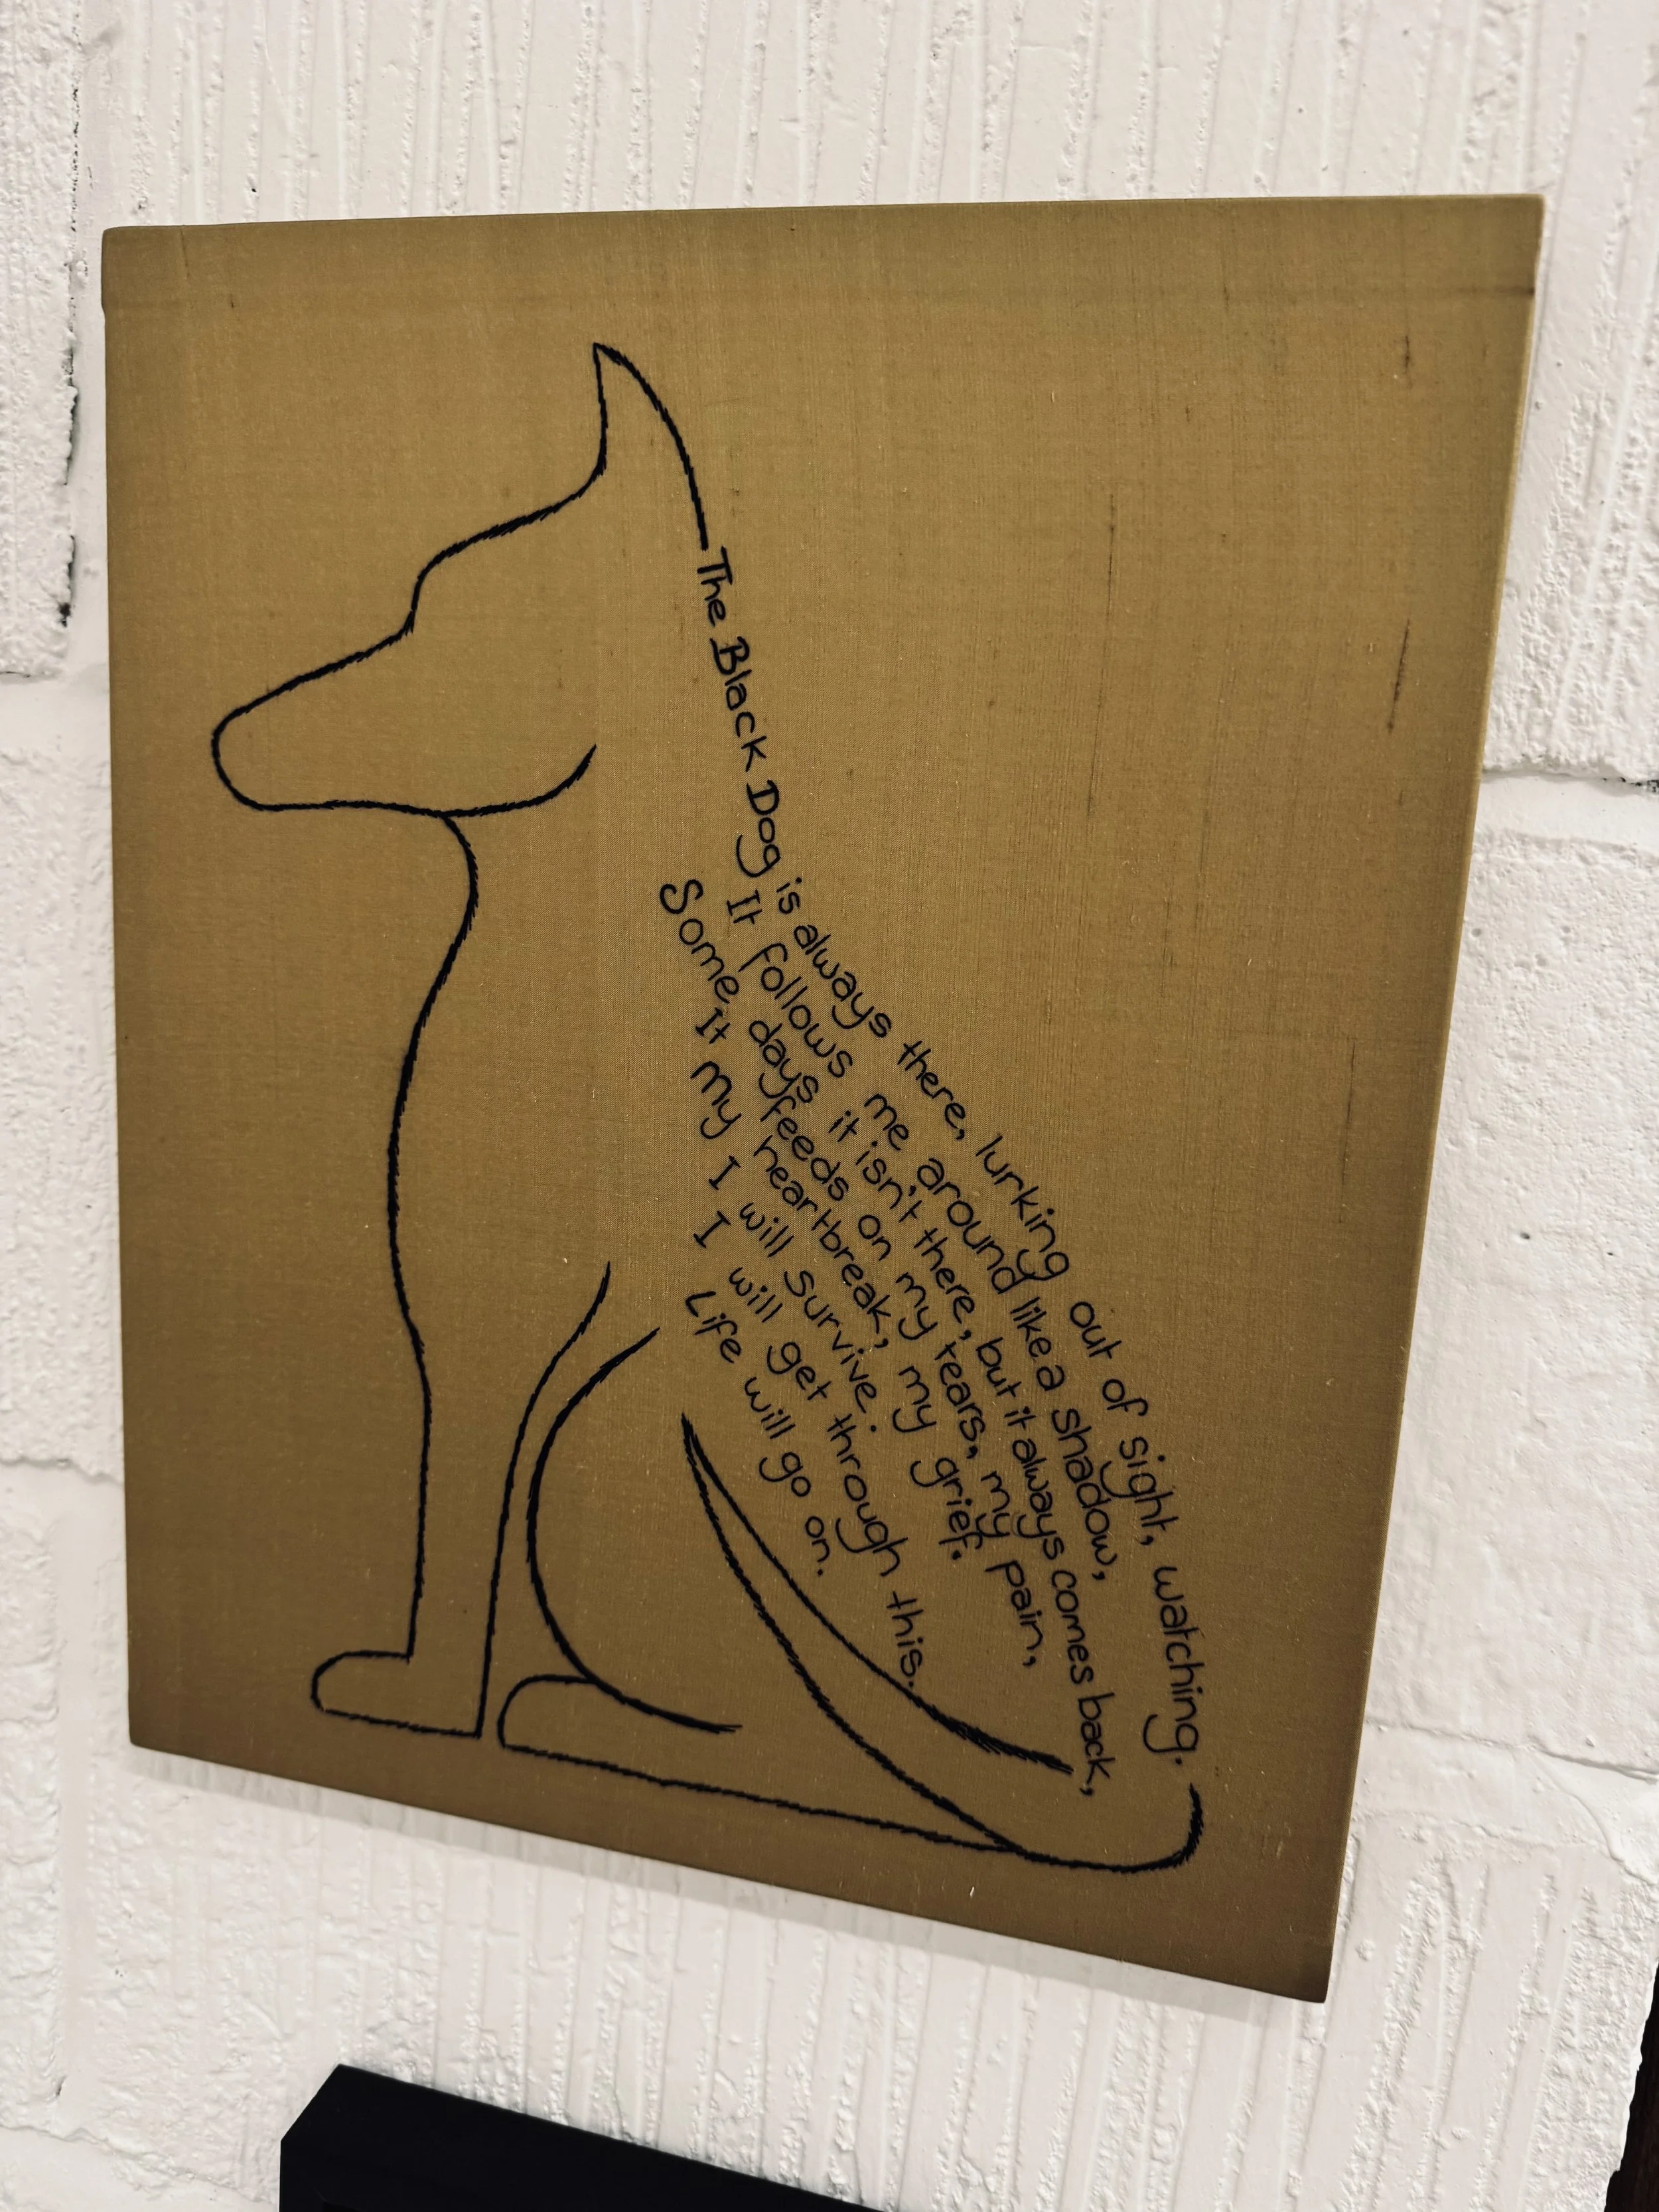 The Black Dog is always there, lurking out of sight, watching.
It follows me around like a shadow,
Some days it isn't there, but it always comes back,
It feeds on my tears, my pain,
My heartbreak, my grief.
I will survive.
I will get through this.
Life will go on.